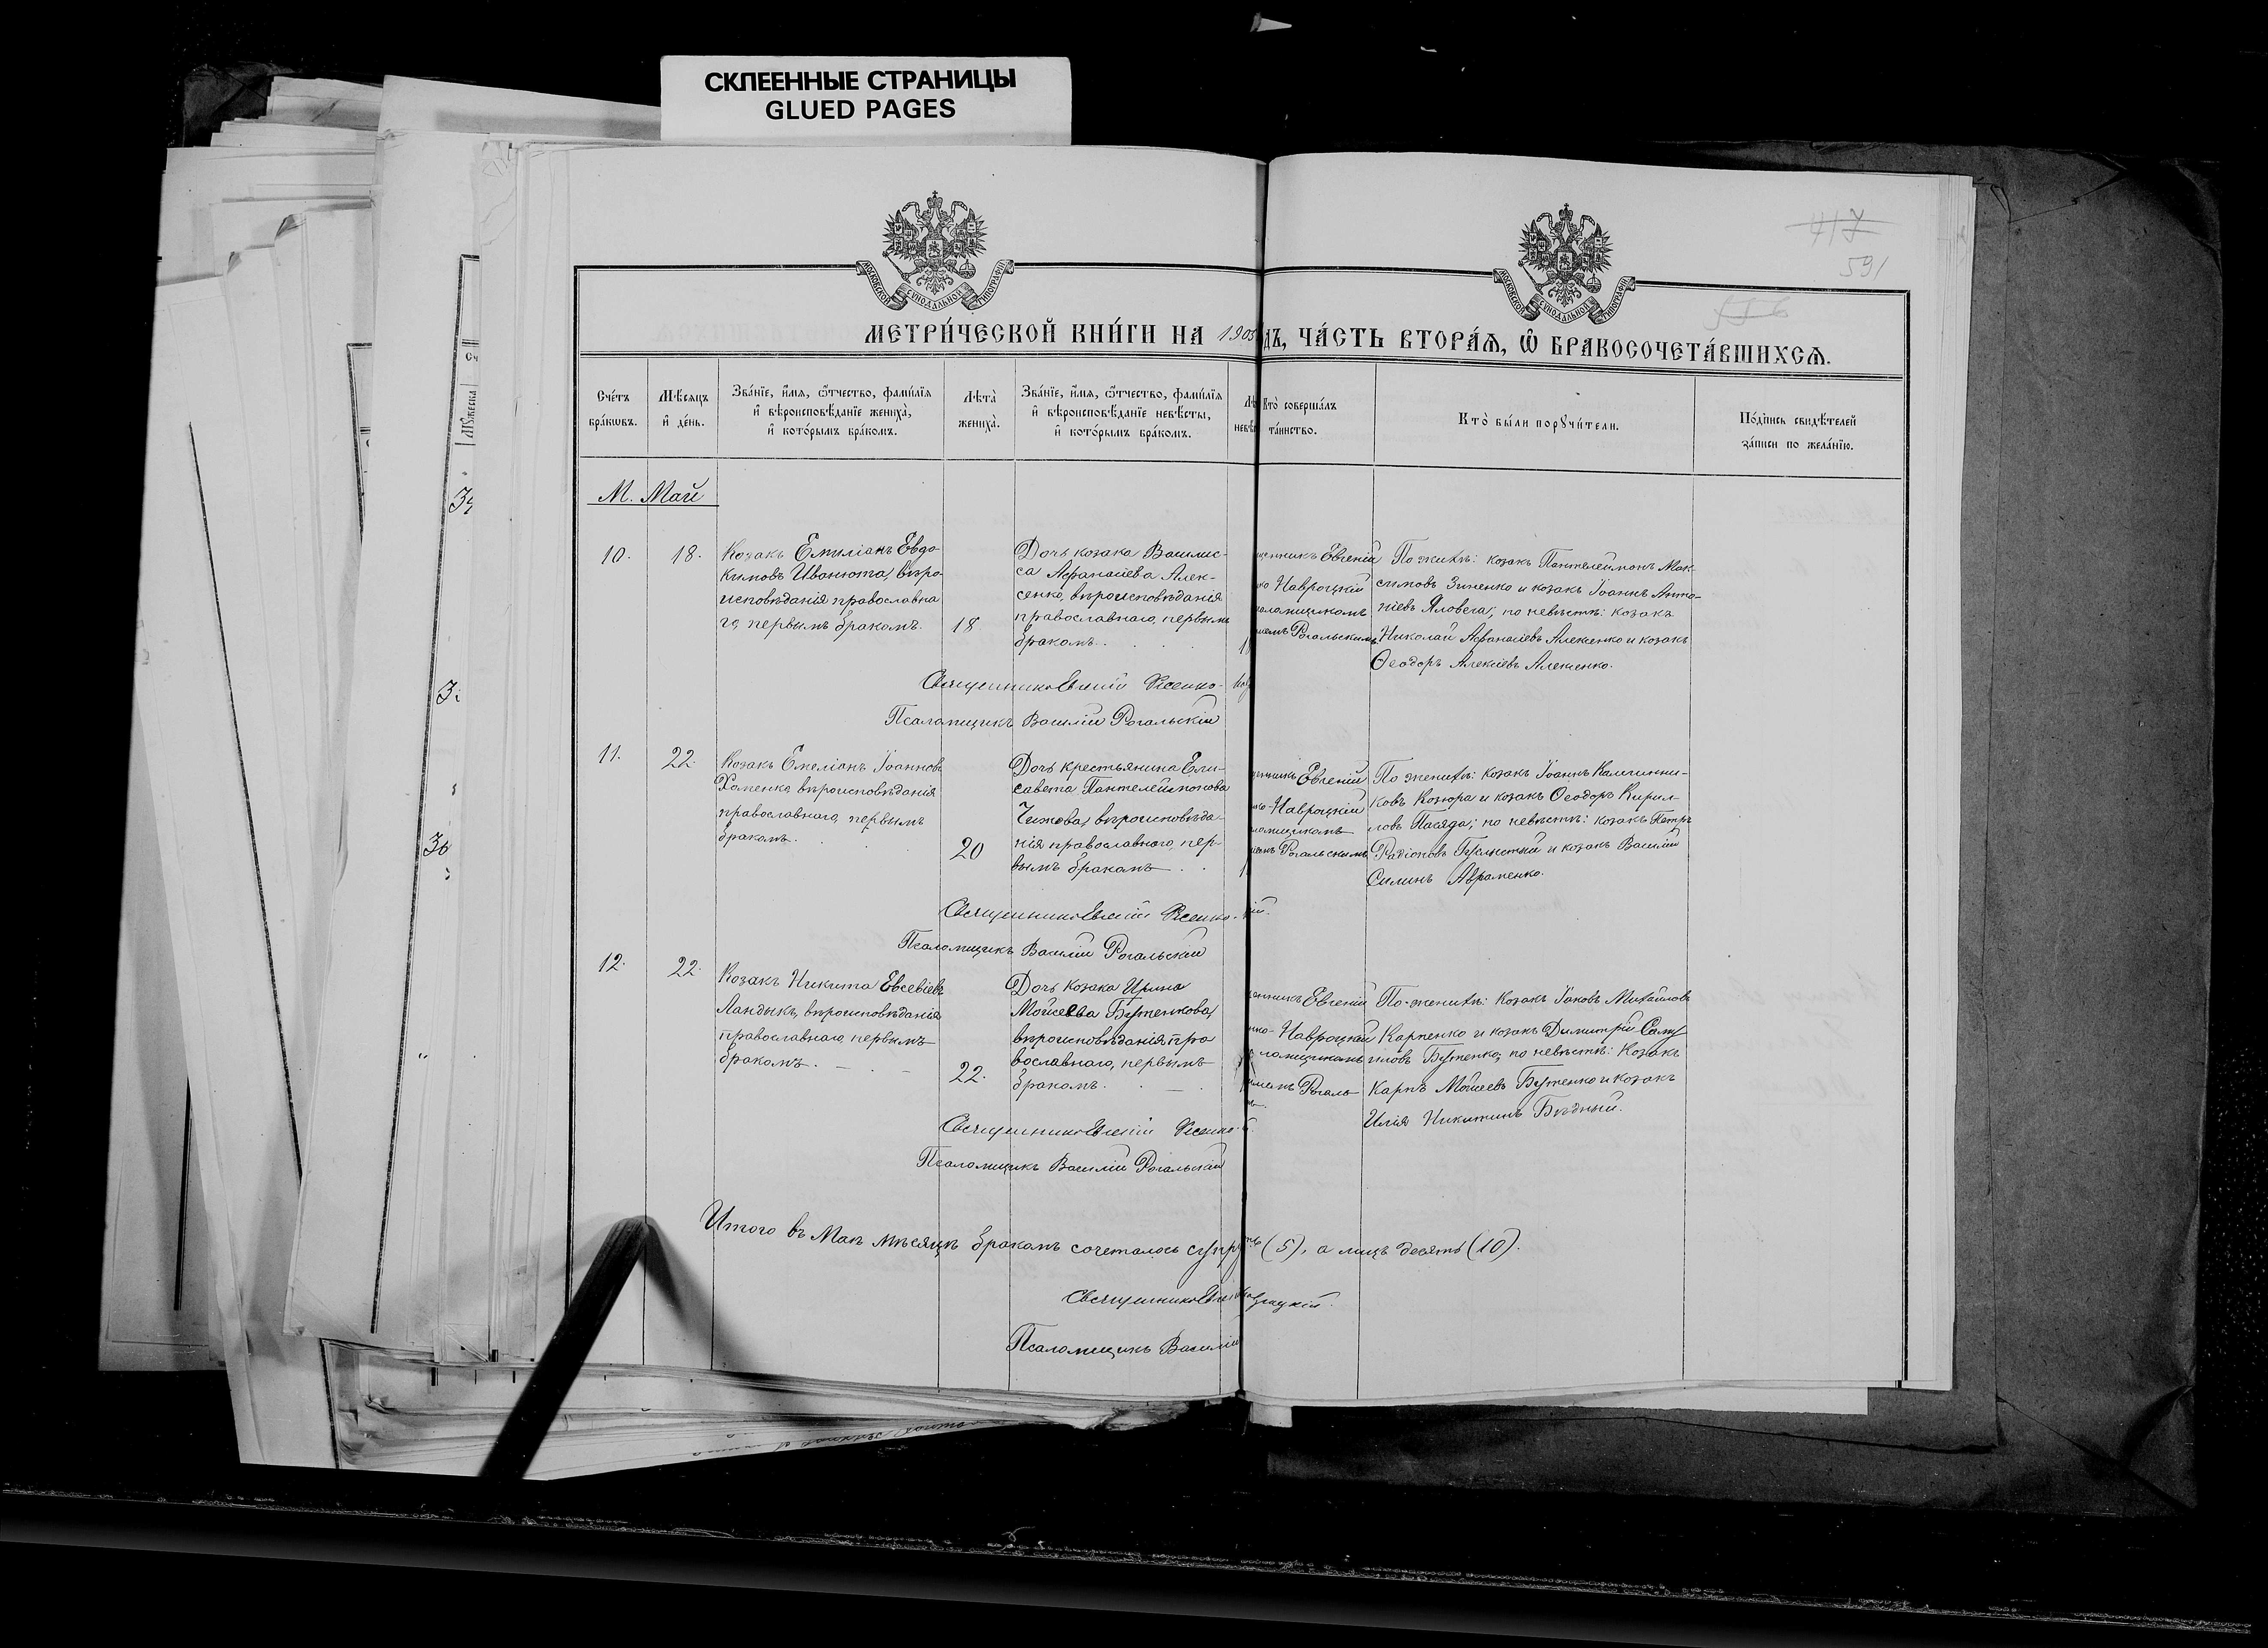 СКЛЕЕННЫЕ СТРАНИЦЫ
GLUED PAGES
417
591
556
МОСКОВСКОЙ СУНОДАЛЬНОЙ ТИПОГРАФІИ
МОСКОВСКОЙ СУНОДАЛЬНОЙ ТИПОГРАФІИ
МЕТРИ́ЧЕСКОЙ КНИ́ГИ НА 1905 ДЪ, ЧА́СТЬ ВТОРА́Ѧ, Ѡ БРАКОСОЧЕТА́ВШИХСѦ.
Сче́тъ бра́кѡвъ.
Мѣ́сяцъ и҆ де́нь.
Зва́нїе, и҆́мѧ, ѻ҆́тчество, фами́лїѧ
и҆ вѣроисповѣ́данїе жениха̀,
и҆ кото́рымъ бра́комъ.
Лѣта̀
жениха̀.
Зва́нїе, и҆́мѧ, ѻ҆́тчество, фами́лїѧ
и҆ вѣроисповѣ́данїе невѣ́сты,
и҆ кото́рымъ бра́комъ.
Лѣ
невѣ
Кто̀ соверша́лъ
та́инство.
Кто̀ бы́ли порꙋчи́тели.
По́дпись свидѣ́телей
за́писи по жела́нїю.
М. Май
10.
18.
Козакъ Емиліанъ Евдо-
кимовъ Иванюта, вѣро-
исповѣданія православна
го, первымъ бракомъ.
18
Дочь козака Василис-
са Афанасіева Алек-
сенко, вѣроисповѣданія
православнаго, первымъ
бракомъ.
щенникъ Евгеній
ко Навроцкій
саломщикомъ
ліемъ Рогальскимъ
По женихѣ: козакъ Пантелеимонъ Мак-
симовъ Зиненко и козакъ Іоаннъ Анто-
ніевъ Яловега; по невѣстѣ: козакъ
Николай Афанасіевъ Алексенко и козакъ
Ѳеодоръ Алексіевъ Алексенко.
Священникъ Евгеній Ксенко-
Псаломщикъ Василій Рогальскій
11.
22.
Козакъ Емеліанъ Іоанновъ
Хоменко, вѣроисповѣданія
православнаго, первымъ
бракомъ.
20
Дочь крестьянина Ели-
савета Пантелеймонова
Чижова, вѣроисповѣда-
нія православнаго, пер-
вымъ бракомъ
щенникъ Евгеній
ко-Навроцкій
ломщикомъ
ліемъ Рогальскимъ
По женихѣ: козакъ Іоаннъ Каллинни-
ковъ Козюра и козакъ Ѳеодоръ Кирил-
ловъ Пасяда; по невѣстѣ: козакъ Петръ
Радіоновъ и козакъ Василій
Силинъ Авраменко.
Священникъ Евгеній Ксенко- ій.
Псаломщикъ Василій Рогальскій
12.
22.
Козакъ Никита Евсевіевъ
Ландыкъ, вѣроисповѣданія
православнаго, первымъ
бракомъ.
22.
Дочь козака Ирина
Мойсеева Бутенкова,
вѣроисповѣданія пра
вославнаго, первымъ
бракомъ.
щенникъ Евгеній
нко- Навроцкій
ломщикомъ
ліемъ Рогаль
По женихѣ: козакъ Іаковъ Михайловъ
Карпенко и козакъ Димитрій Саму
иловъ Бутенко; по невѣстѣ: козакъ
Карпъ Мойсеевъ Бутенко и козакъ
Илія Никитинъ Бѣдный.
Священникъ Евгеній Ксенко
Псаломщикъ Василій Рогальскій
Итого въ Маѣ мѣсяцѣ бракомъ сочеталось супр (5), а лицъ десять (10).
Священникъ Евгеній Навроцкій.
Псаломщикъ Василій